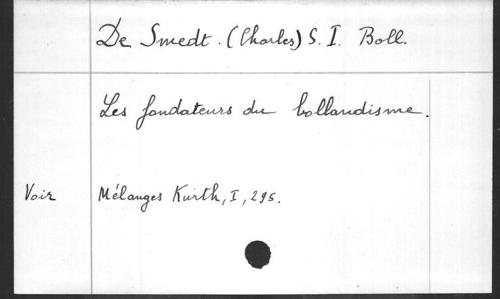 De Smedt. (Charles) S. I. Boll.
Les fondateurs du bollandisme.
Voir Mélanges Kurth, I, 295.